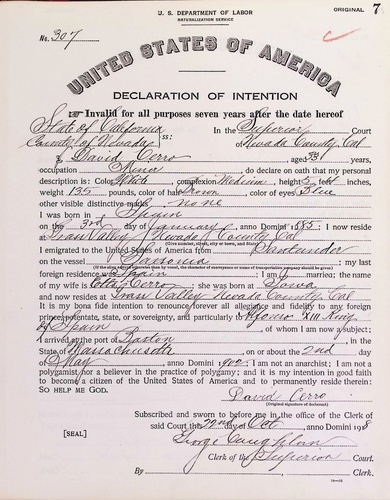 U. S. DEPARTMENT OF LABOR
NATURALIZATION SERVICE
ORIGINAL 7
No. 307
UNITED STATES OF AMERICA
DECLARATION OF INTENTION
Invalid for all purposes seven years after the date hereof
State of California
County of Nevada ss: In the Superior Court of Nevada County Cal
I, David Cerro, aged years,
occupation Miner, do declare on oath that my personal
description is: Color White, complexion Medium, height 5 feet inches,
weight 135 pounds, color of hair Brown, color of eyes Blue
other visible distinctive marks none
I was born in Spain
on the 3rd day of January, anno Domini 1885; I now reside
at Grass Valley Nevada County Cal
(Give number, street, city or town, and State)
I emigrated to the United States of America from Santander
on the vessel; my last
(If the alien arrived otherwise than by vessel, the character of conveyance or name of transportation company should be given)
foreign residence was Spain; I am married; the name
of my wife is Cerro; she was born at Iowa
and now resides at Grass Valley Nevada County Cal
It is my bona fide intention to renounce forever all allegiance and fidelity to any foreign
prince, potentate, state, or sovereignty, and particularly to Alfonso XIII King
of Spain, of whom I am now a subject;
I arrived at the port of Boston, in the
State of Massachusetts, on or about the 2nd day
of May, anno Domini; I am not an anarchist; I am not a
polygamist nor a believer in the practice of polygamy; and it is my intention in good faith
to become a citizen of the United States of America and to permanently reside therein:
SO HELP ME GOD.
David Cerro
(Original signature of declarant)
Subscribed and sworn to before me in the office of the Clerk of
said Court this 22nd day of Oct, anno Domini 1918
[SEAL]
George
Clerk of the Superior Court.
By, Clerk.